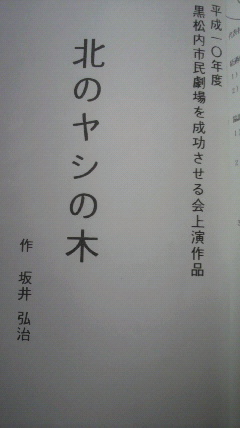 平成一〇年度
黒松内市民劇場を成功させる会上演作品
北のヤシの木
作 坂井 弘治